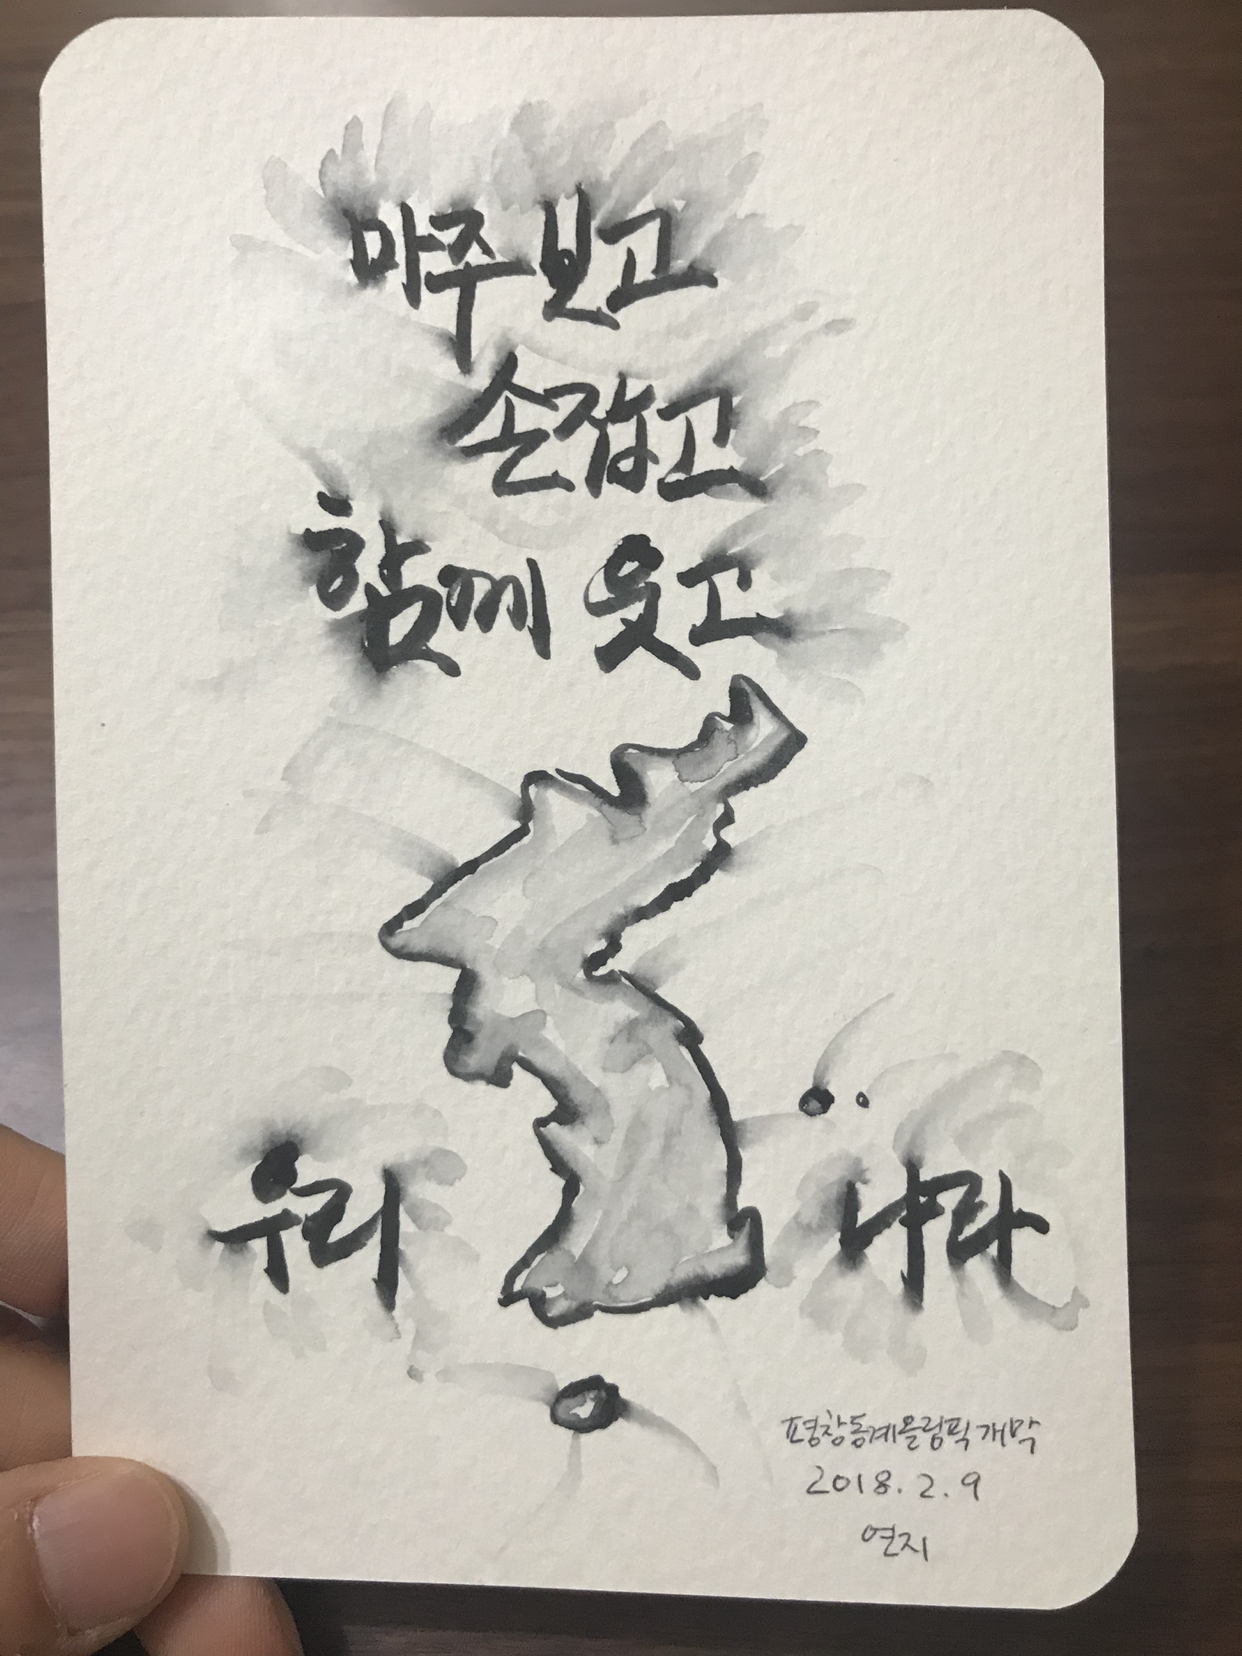 마주 보고
손잡고
함께 웃고
우리 나라
평창동계올림픽 개막
2018. 2. 9
연지